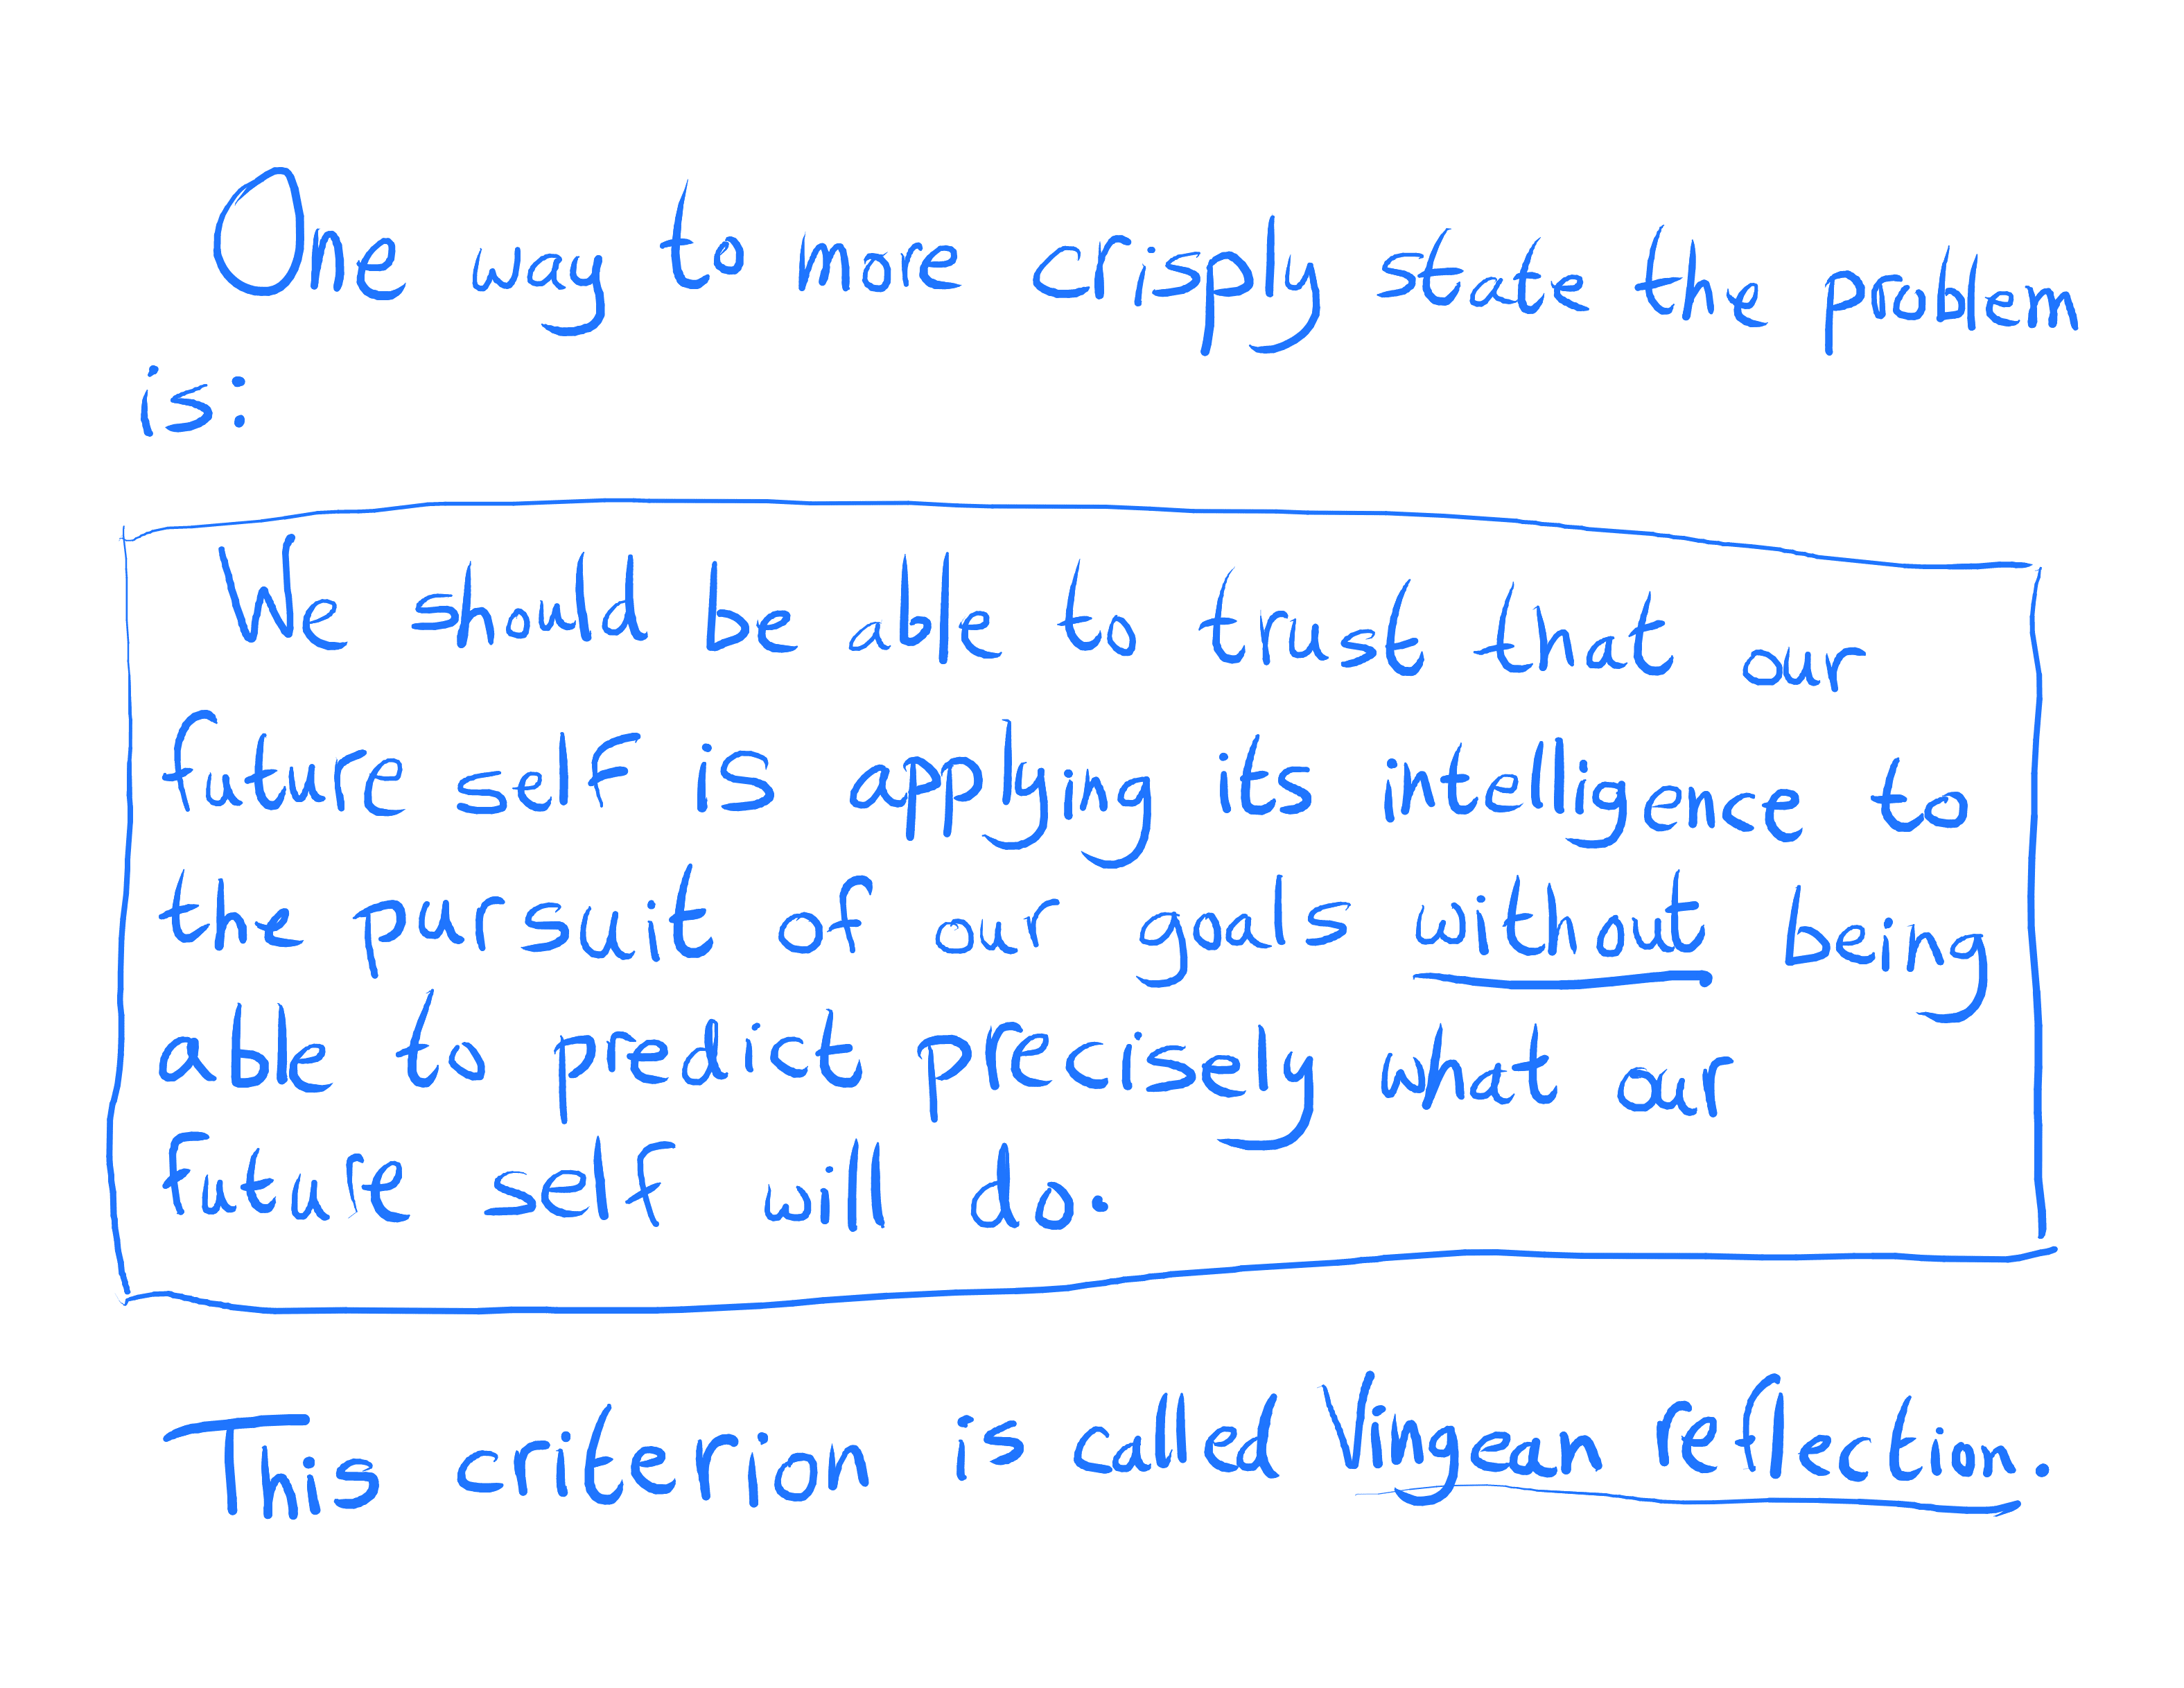 One way to more crisply state the problem
is:
We should be able to trust that our
future self is applying its intelligence to
the pursuit of our goals without being
able to predict precisely what our
future self will do.
This criterion is called Vingean reflection.